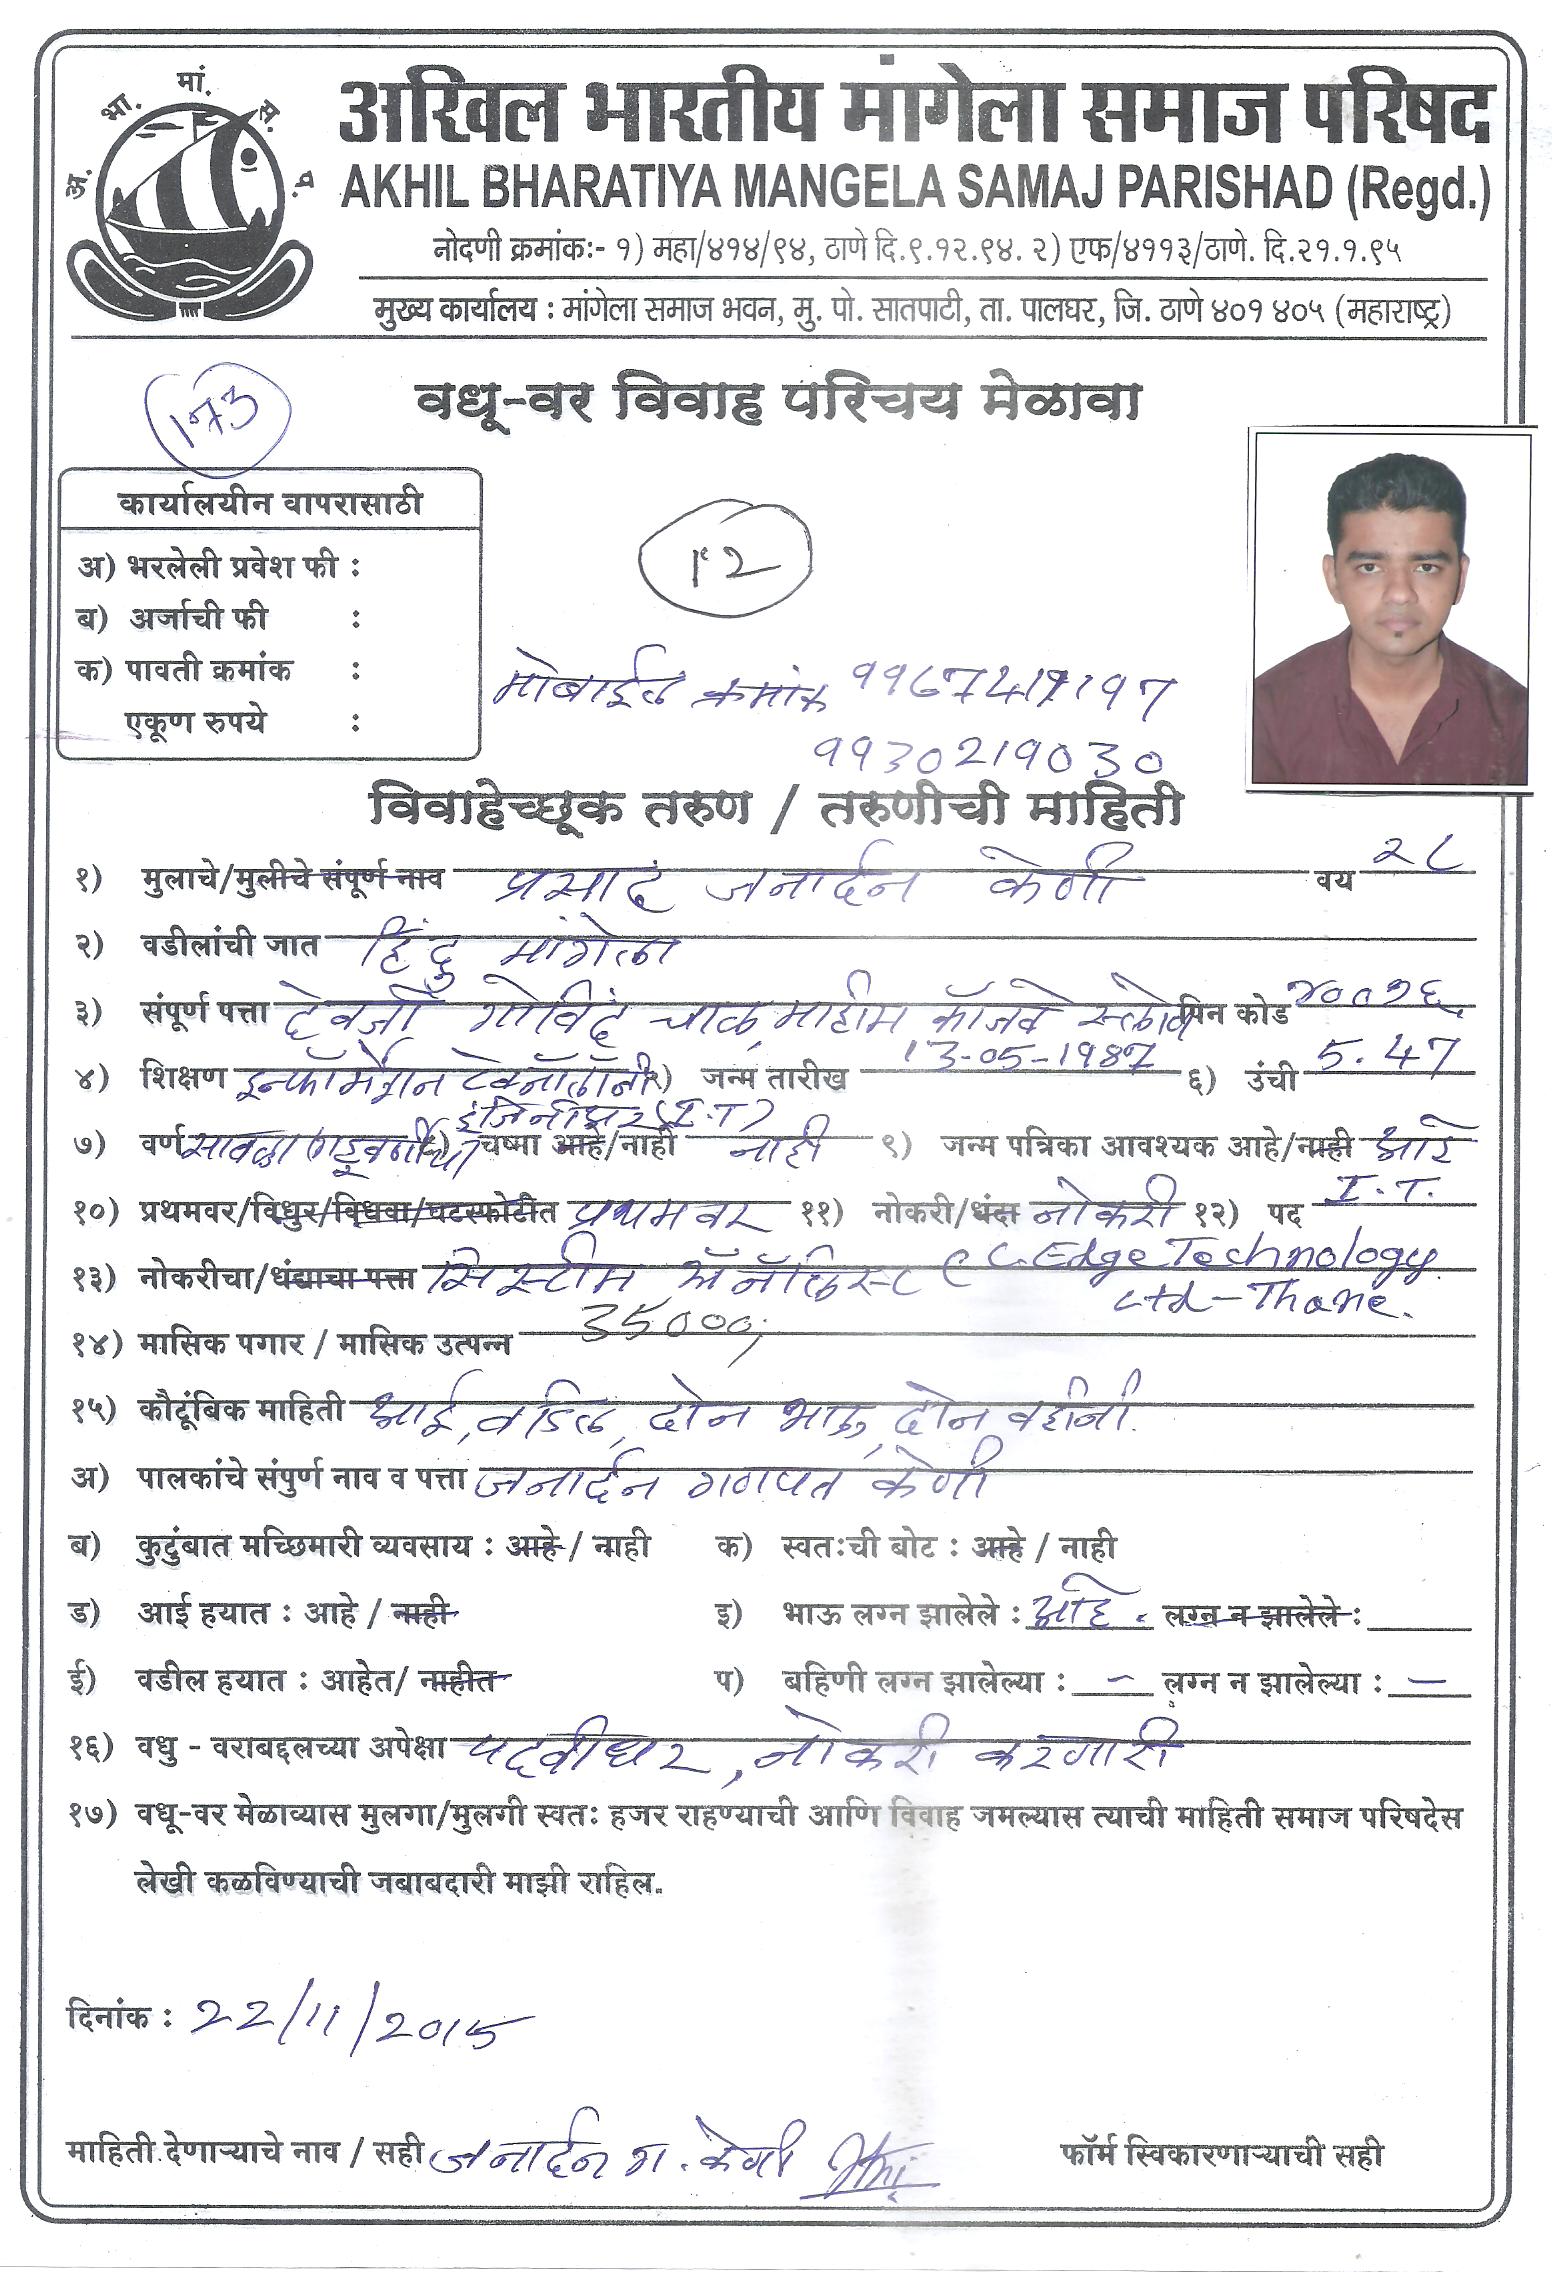 अ. भा. मां. स. प.
अखिल भारतीय मांगेला समाज परिषद
AKHIL BHARATIYA MANGELA SAMAJ PARISHAD (Regd.)
नोदणी क्रमांकः- १) महा/४१४/९४, ठाणे दि.९.१२.९४. २) एफ/४११३/ठाणे. दि.२१.१.९५
मुख्य कार्यालय : मांगेला समाज भवन, मु. पो. सातपाटी, ता. पालघर, जि. ठाणे ४०१ ४०५ (महाराष्ट्र)
173
वधू-वर विवाह परिचय मेळावा
कार्यालयीन वापरासाठी
अ) भरलेली प्रवेश फी :
ब) अर्जाची फी :
क) पावती क्रमांक :
एकूण रुपये :
१२
मोबाईल क्रमांक
९९३०२१९०३०
विवाहेच्छूक तरुण / तरुणीची माहिती
१) मुलाचे/मुलीचे संपूर्ण नाव प्रसाद जनार्दन केणी वय २८
२) वडीलांची जात हिंदु मांगेला
३) संपूर्ण पत्ता देवजी गोविंद चाळ, माहीम कॉजवे पिन कोड ४०००१६
४) शिक्षण इन्फॉर्मेशन टेक्नॉलॉजी ५) जन्म तारीख 13-05-1987 ६) उंची 5.47
इंजिनीअर (I.T)
७) वर्ण सावळा गहूवर्णीय ८) चष्मा आहे/नाही नाही ९) जन्म पत्रिका आवश्यक आहे/नाही आहे
१०) प्रथमवर/विधुर/विधवा/घटस्फोटीत प्रथमवर ११) नोकरी/धंदा नोकरी १२) पद I.T.
१३) नोकरीचा/धंद्याचा पत्ता सिस्टीम अॅनॅलिस्ट C Edge Technology
Ltd - Thane.
१४) मासिक पगार / मासिक उत्पन्न 35000/
१५) कौटूंबिक माहिती आई, वडिल, दोन भाऊ, दोन वहीनी.
अ) पालकांचे संपुर्ण नाव व पत्ता जनार्दन गणपत केणी
ब) कुटुंबात मच्छिमारी व्यवसाय : आहे / नाही क) स्वतःची बोट : आहे / नाही
ड) आई हयात : आहे / नाही इ) भाऊ लग्न झालेले : आहे. लग्न न झालेले :
ई) वडील हयात : आहेत/ नाहीत प) बहिणी लग्न झालेल्या : - लग्न न झालेल्या : -
१६) वधु - वराबद्दलच्या अपेक्षा पदवीधर, नोकरी करणारी
१७) वधू-वर मेळाव्यास मुलगा/मुलगी स्वतः हजर राहण्याची आणि विवाह जमल्यास त्याची माहिती समाज परिषदेस
लेखी कळविण्याची जबाबदारी माझी राहिल.
दिनांक : 22/11/2015
माहिती देणाऱ्याचे नाव / सही जनार्दन ग. केणी फॉर्म स्विकारणाऱ्याची सही